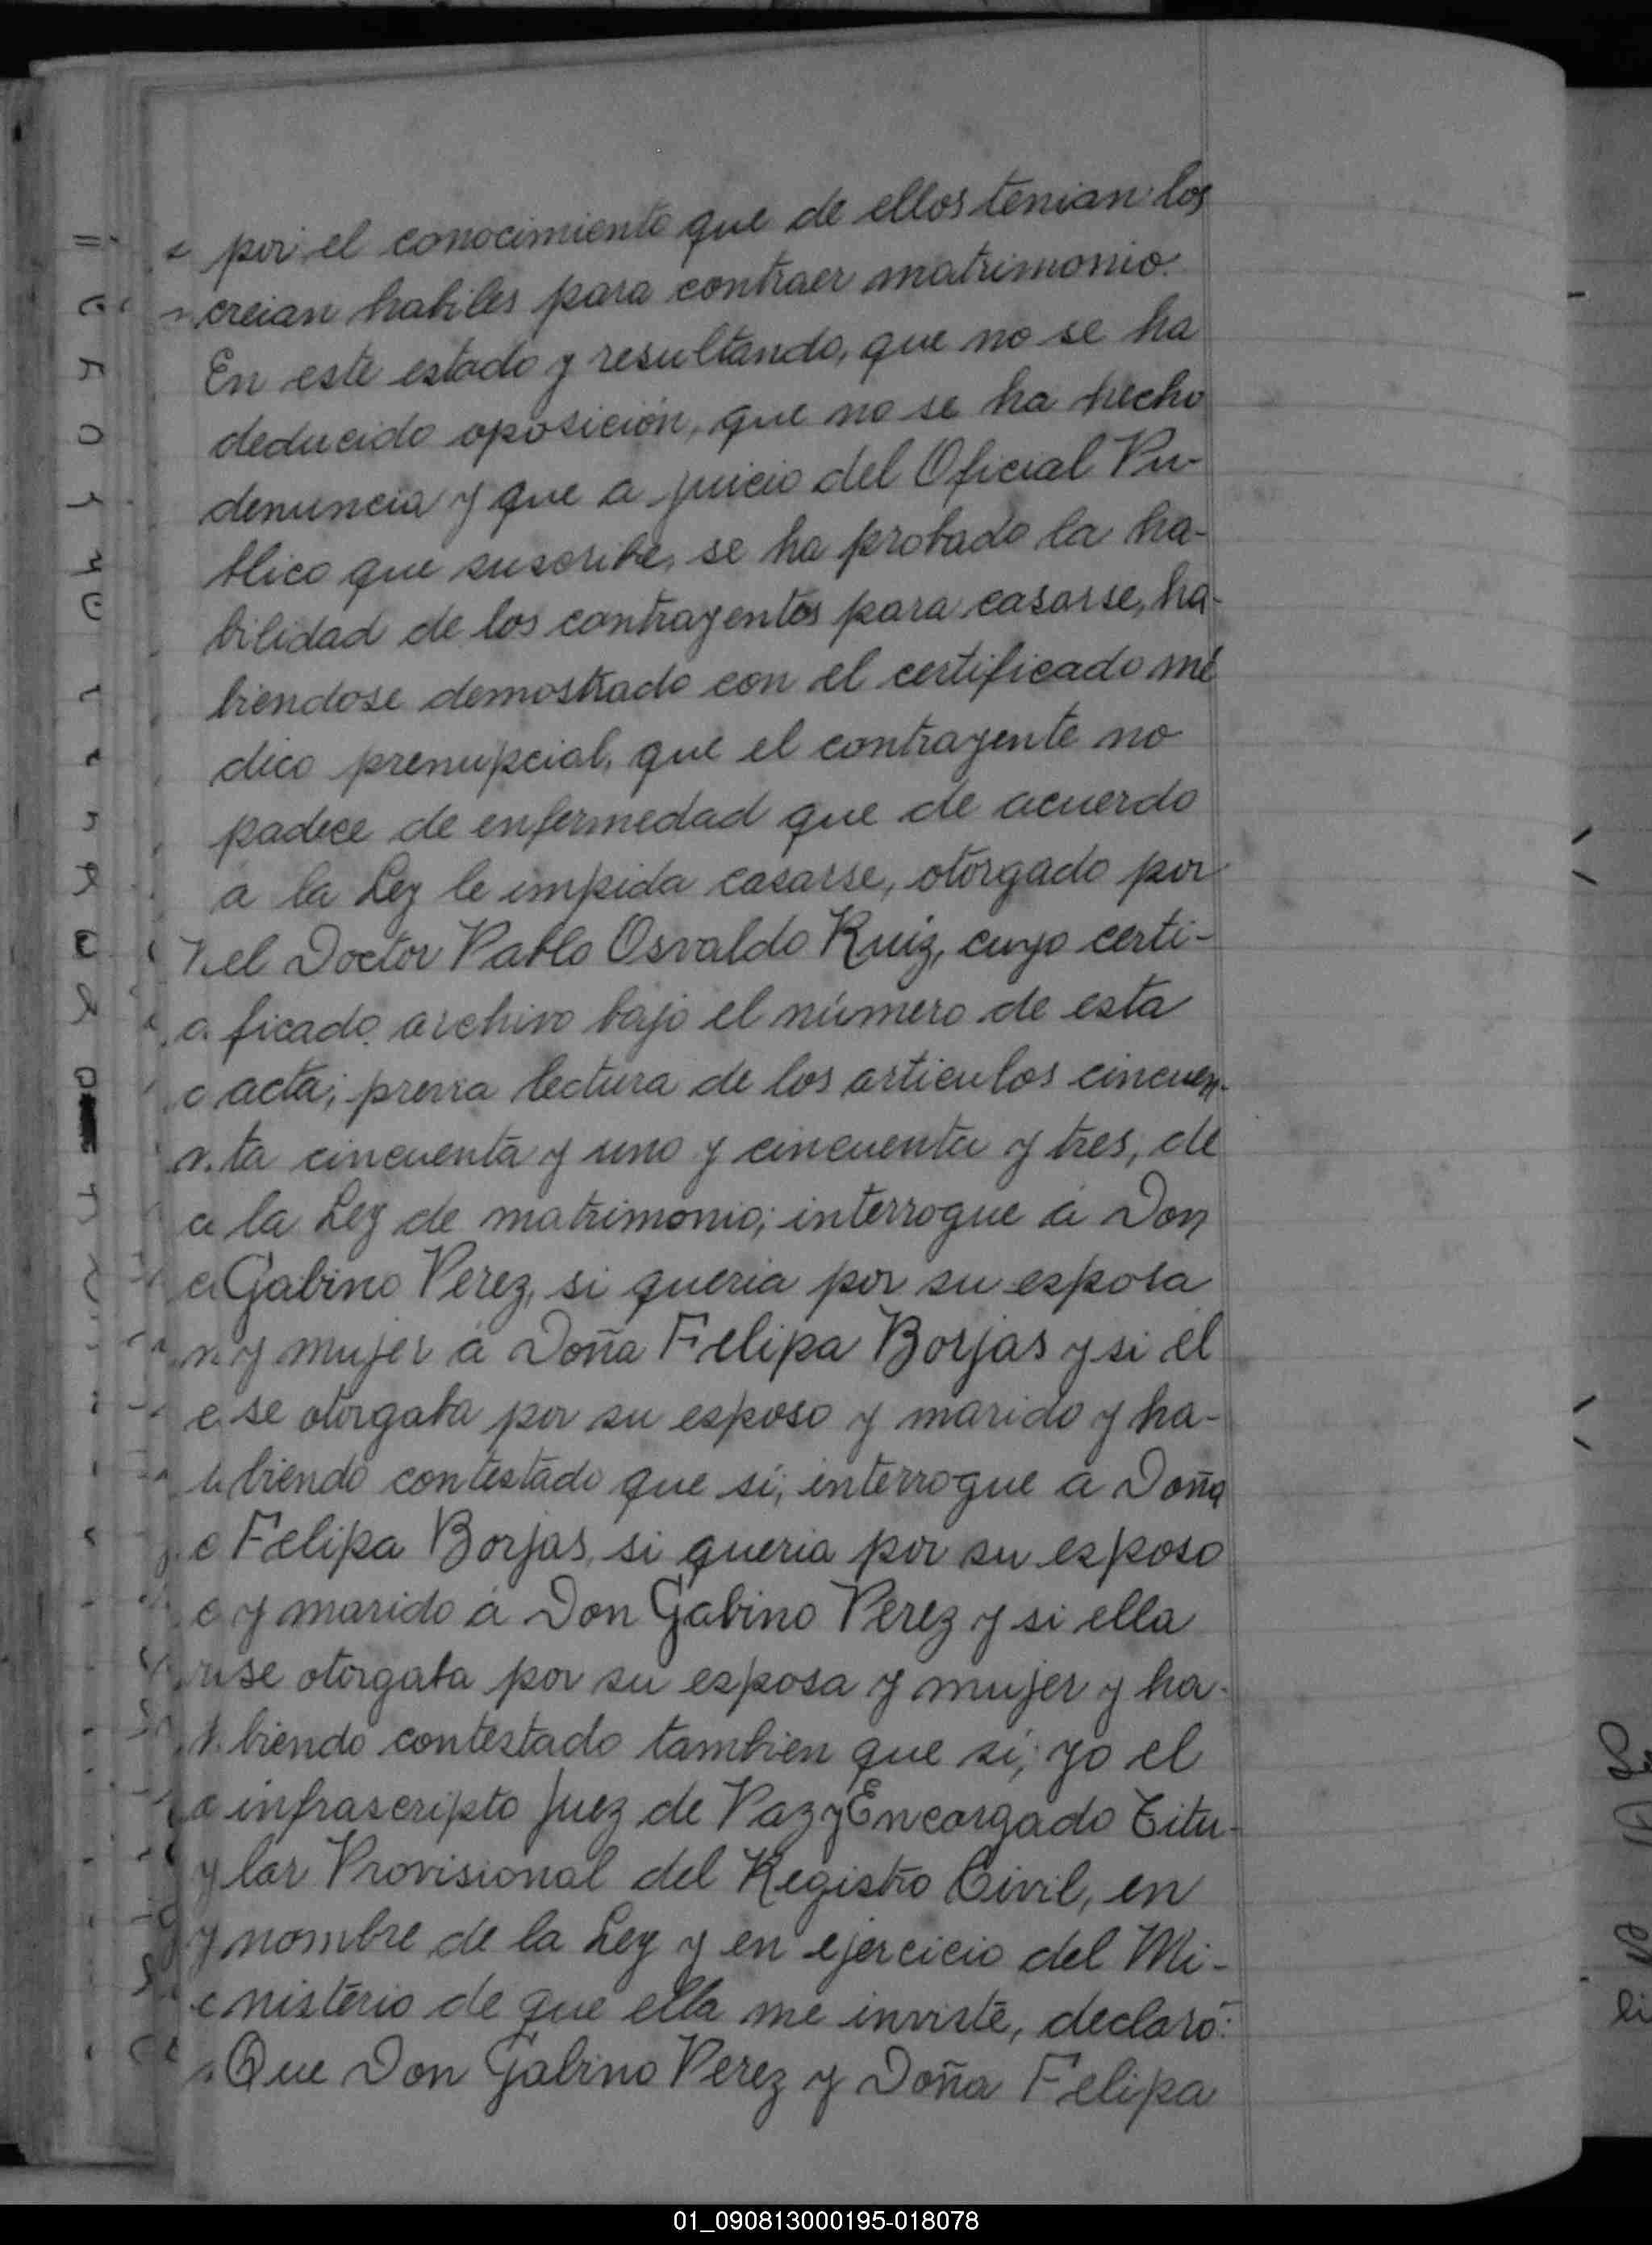 por el conocimiento que de ellos tenian los
creian habiles para contraer matrimonio.
En este estado y resultando, que no se ha
deducido oposición, que no se ha hecho
denuncia y que a juicio del Oficial Pu-
blico que suscribe, se ha probado la ha-
bilidad de los contrayentes para casarse, ha-
biendose demostrado con el certificado mé
dico prenupcial, que el contrayente no
padece de enfermedad que de acuerdo
a la Ley le impida casarse, otorgado por
el Doctor Pablo Osvaldo Ruiz, cuyo certi-
ficado archivo bajo el número de esta
acta; previa lectura de los articulos cincuen-
ta cincuenta y uno y cincuenta y tres, de
la Ley de matrimonio; interrogue á Don
Gabino Perez, si queria por su esposa
y mujer á Doña Felipa Borjas y si él
se otorgaba por su esposo y marido y ha-
biendo contestado que sí; interrogue a Doña
Felipa Borjas, si queria por su esposo
y marido á Don Gabino Perez y si ella
se otorgaba por su esposa y mujer y ha-
biendo contestado tambien que sí; yo el
infrascripto Juez de Paz y Encargado Titu-
lar Provisional del Registro Civil, en
nombre de la Ley y en ejercicio del Mi-
nisterio de que ella me inviste, declaró:
Que Don Gabino Perez y Doña Felipa
01_090813000195-018078